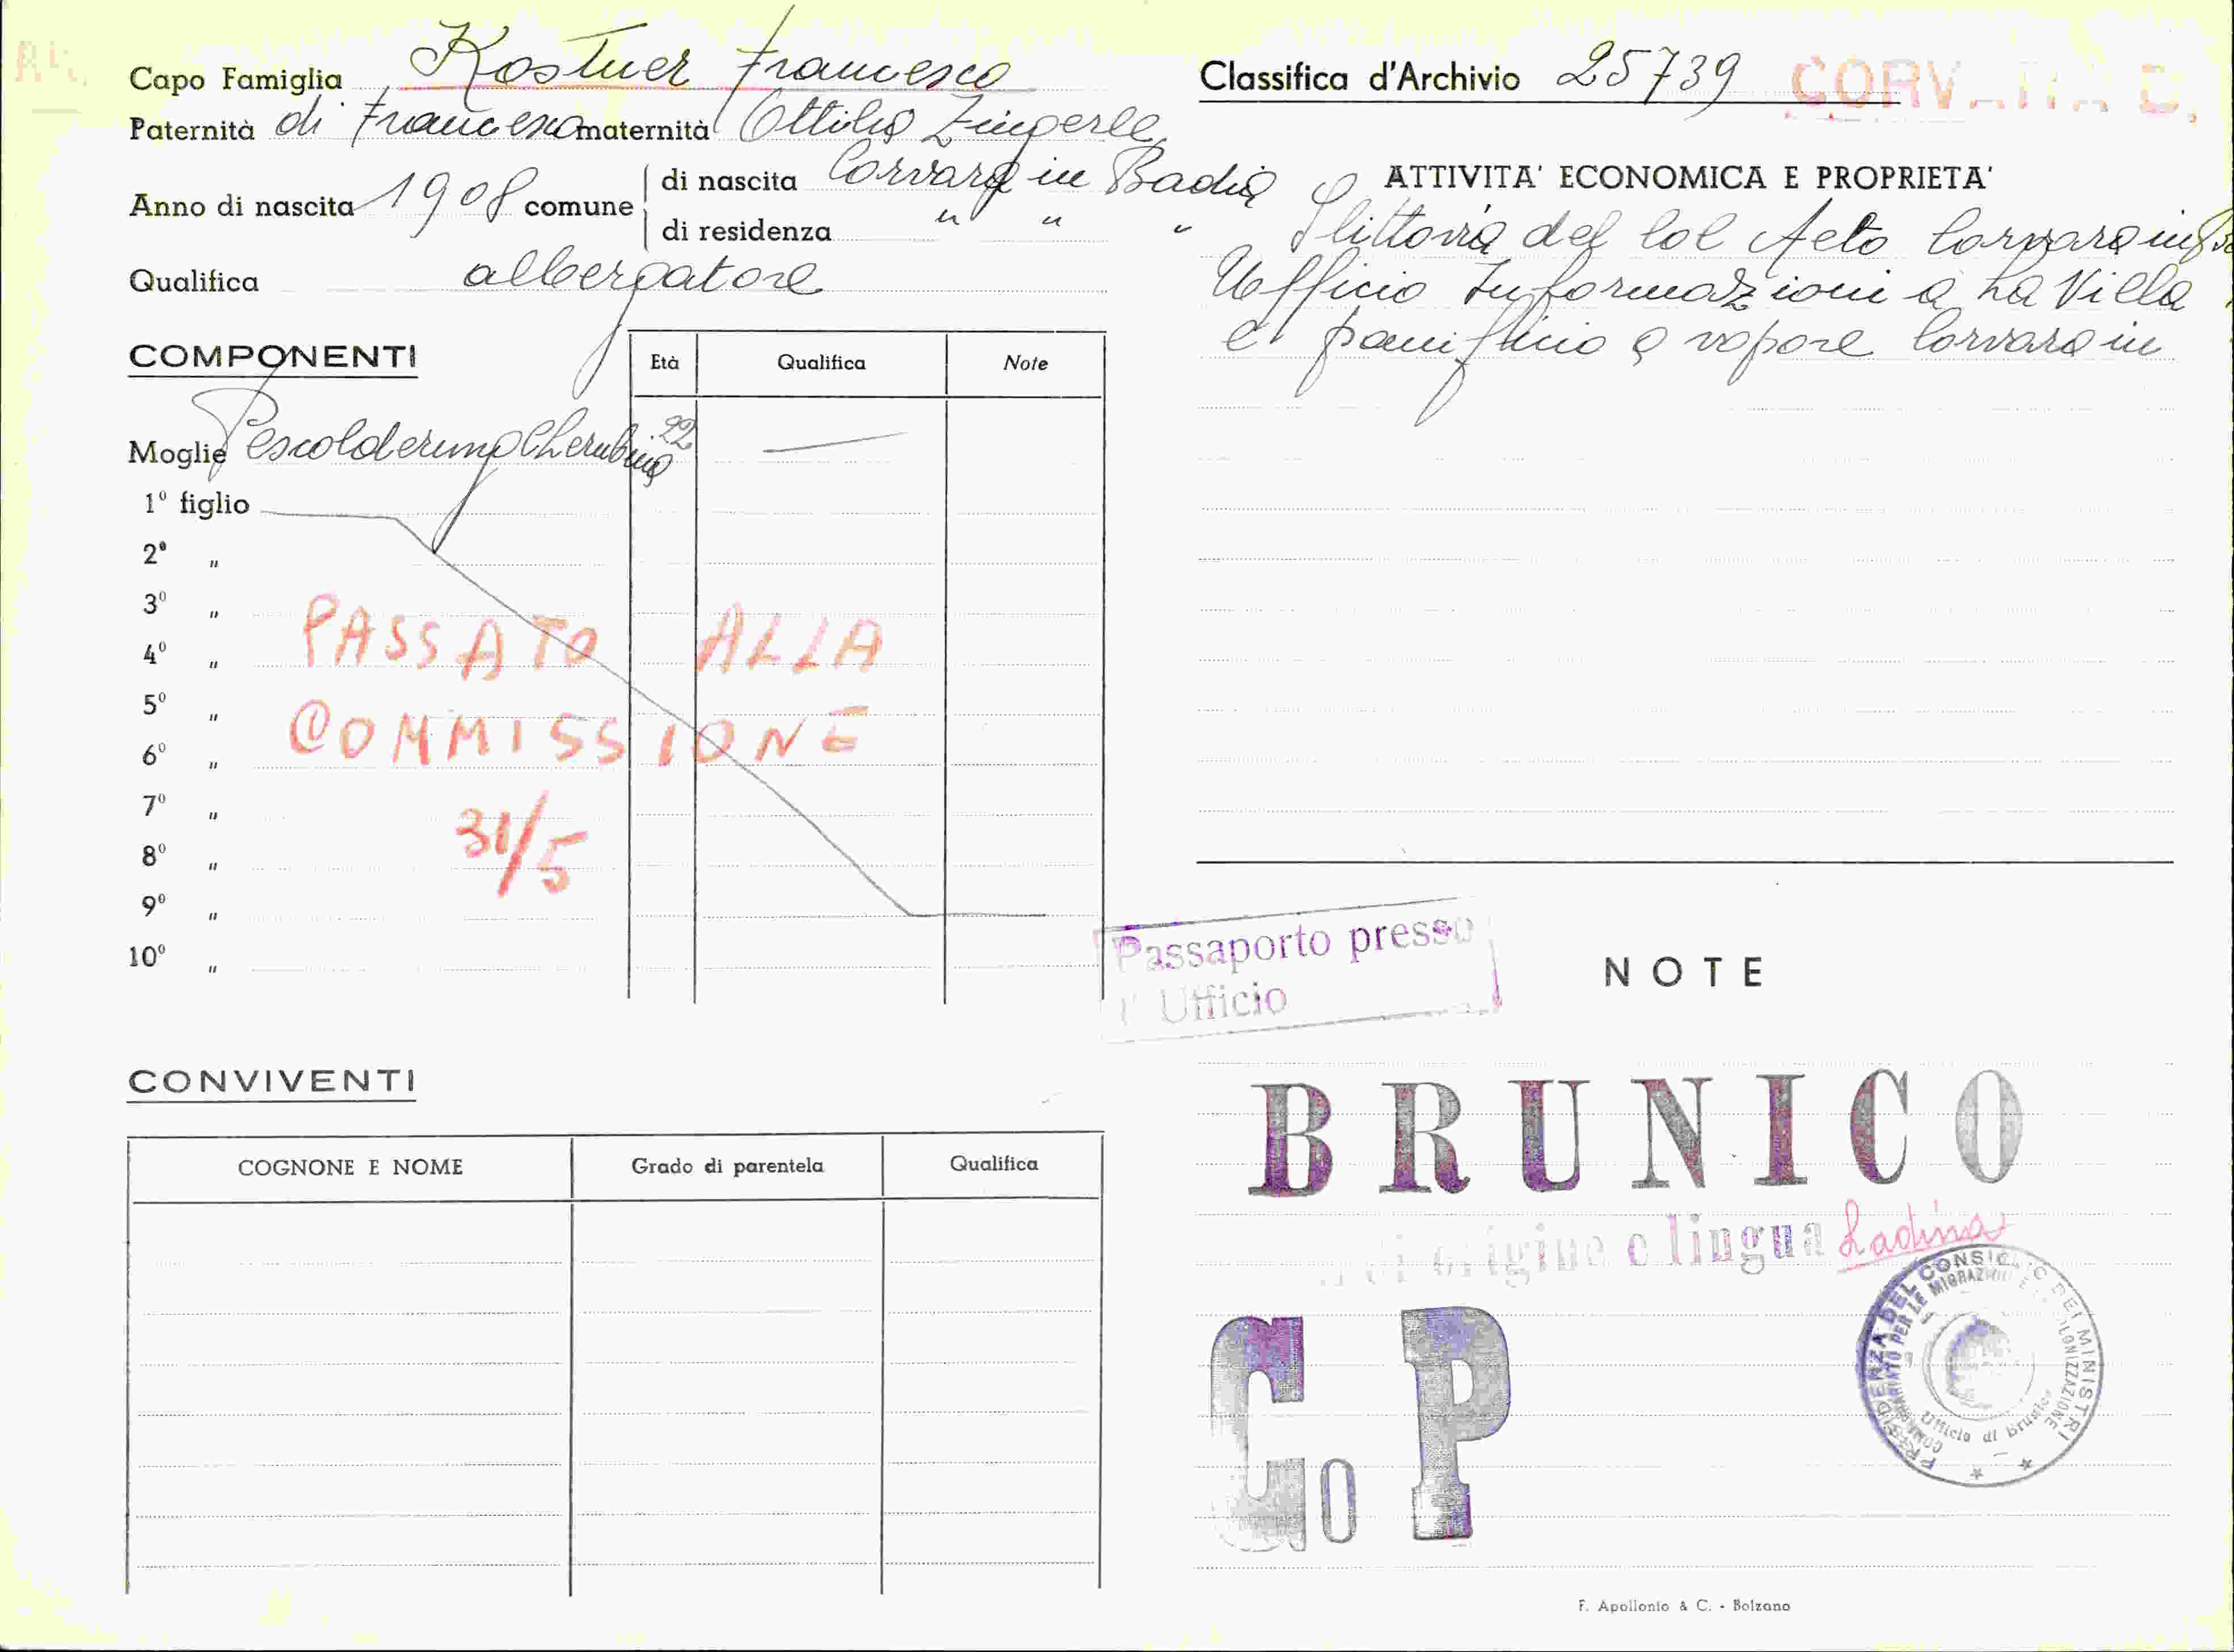 Capo Famiglia Kostner Francesco
Paternità di Francesco maternità Ottilia Zingerle
Anno di nascita 1908 comune
di nascita Corvara in Badia
di residenza " " "
Qualifica albergatore
COMPONENTI
Età Qualifica Note
Moglie Pescolderung Cherubina 22
1º figlio
2º "
3º "
4º "
5º "
6º "
7º "
8º "
9º "
10º "
PASSATO ALLA
COMMISSIONE
31/5
CONVIVENTI
COGNONE E NOME Grado di parentela Qualifica
Classifica d'Archivio 25739
ATTIVITA' ECONOMICA E PROPRIETA'
Slittovia del Col Alto Corvara in
Ufficio Informazioni a La Villa
e panificio a vapore Corvara in
Passaporto presso
l' Ufficio
NOTE
BRUNICO
di origine e lingua Ladina
PRESIDENZA DEL CONSIGLIO DEI MINISTRI
COMMISSARIATO PER LE MIGRAZIONI E LA COLONIZZAZIONE
Ufficio di Brunico
Co P
F. Apollonio & C. - Bolzano